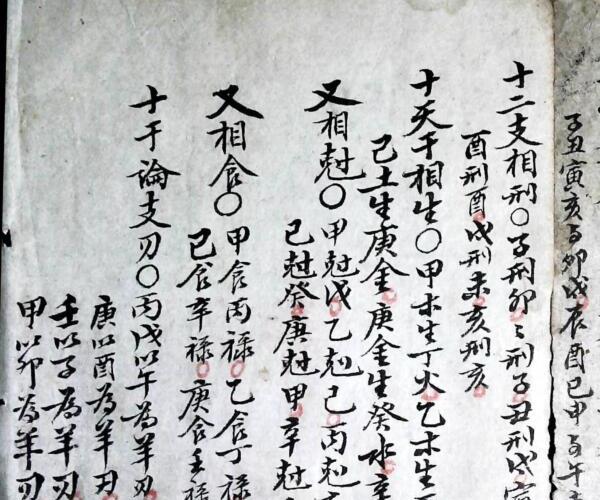 子丑寅亥子卯戌辰酉巳申子午
十二支相刑〇子刑卯〻刑子丑刑戌寅
酉刑酉戌刑未亥刑亥
十天干相生〇甲木生丁火乙木生
己土生庚金庚金生癸水辛
又相尅〇甲尅戊乙尅己丙尅
己尅癸庚尅甲辛尅
又相食〇甲食丙祿乙食丁祿
己食辛祿庚食壬祿
十干論支刃〇丙戊以午為羊刃
庚以酉為羊刃
壬以子為羊刃
甲以卯為羊刃